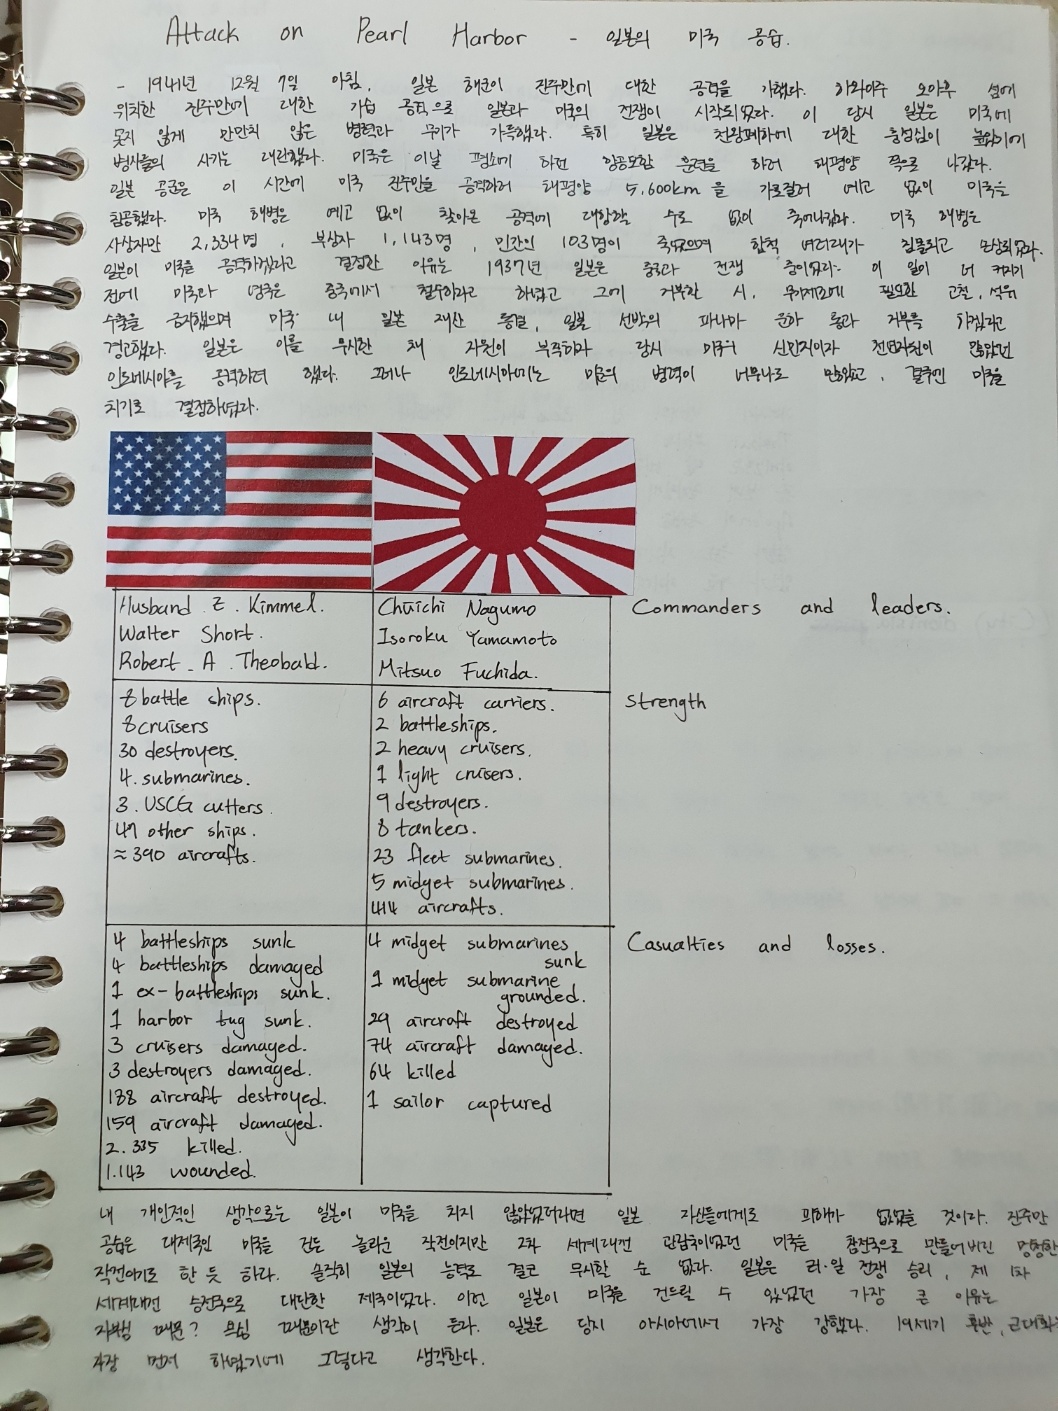 Attack on Pearl Harbor - 일본의 미국 공습.
- 1941년 12월 7일 아침, 일본 해군이 진주만에 대한 공격을 가했다. 하와이주 오아후 섬에
위치한 진주만에 대한 기습 공격으로 일본과 미국의 전쟁이 시작되었다. 이 당시 일본은 미국에
못지 않게 만만치 않은 병력과 무기가 가득했다. 특히 일본은 천왕폐하에 대한 충성심이 높았기에
병사들의 사기는 대단했다. 미국은 이날 평소에 하던 항공모함 훈련을 하러 태평양 쪽으로 나갔다.
일본 공군은 이 시간에 미국 진주만을 공격하러 태평양 5,600km 을 가로질러 예고 없이 미국을
침공했다. 미국 해병은 예고 없이 찾아온 공격에 대항할 수도 없이 죽어나갔다. 미국 해병은
사상자만 2,334명, 부상자 1,143명, 민간인 103명이 죽었으며 함척 여러대가 침몰되고 손상되었다.
일본이 미국을 공격하겠다고 결정한 이유는 1937년 일본은 중국과 전쟁 중이었다. 이 일이 더 커지기
전에 미국과 영국은 중국에서 철수하라고 하였고 그에 거부한 시, 무기제조에 필요한 고철, 석유
수출을 금지했으며 미국 내 일본 재산 동결, 일본 선박의 파나마 운하 통과 거부를 하겠다고
경고했다. 일본은 이를 무시한 채 자원이 부족하자 당시 미국의 식민지이자 천연자원이 많았던
인도네시아를 공격하려 했다. 그러나 인도네시아에는 미군의 병력이 너무나도 많았고, 결국엔 미국을
치기로 결정하였다.
Husband E. Kimmel.
Walter Short.
Robert A. Theobald.
Chuichi Nagumo
Isoroku Yamamoto
Mitsuo Fuchida.
Commanders and leaders.
8 battle ships.
8 cruisers
30 destroyers.
4. submarines.
3. USCG cutters.
47 other ships.
≈ 390 aircrafts.
6 aircraft carriers.
2 battleships.
2 heavy cruisers.
1 light cruisers.
9 destroyers.
8 tankers.
23 fleet submarines.
5 midget submarines.
414 aircrafts.
Strength
4 battleships sunk
4 battleships damaged
1 ex-battleships sunk.
1 harbor tug sunk.
3 cruisers damaged.
3 destroyers damaged.
188 aircraft destroyed.
159 aircraft damaged.
2.335 killed.
1.143 wounded.
4 midget submarines
sunk
1 midget submarine
grounded.
29 aircraft destroyed
74 aircraft damaged.
64 killed
1 sailor captured
Casualties and losses.
내 개인적인 생각으로는 일본이 미국을 치지 않았었더라면 일본 자신들에게도 피해가 없었을 것이다. 진주만
공습은 대제국인 미국을 건든 놀라운 작전이지만 2차 세계대전 관람국이었던 미국을 참전국으로 만들어버린 멍청한
작전이기도 한 듯 하다. 솔직히 일본의 능력도 결코 무시할 순 없다. 일본은 러·일 전쟁 승리, 제 1차
세계대전 승전국으로 대단한 제국이었다. 이런 일본이 미국을 건드릴 수 있었던 가장 큰 이유는
자뻑 때문? 욕심 때문이란 생각이 든다. 일본은 당시 아시아에서 가장 강했다. 19세기 후반, 근대화를
가장 먼저 하였기에 그렇다고 생각한다.